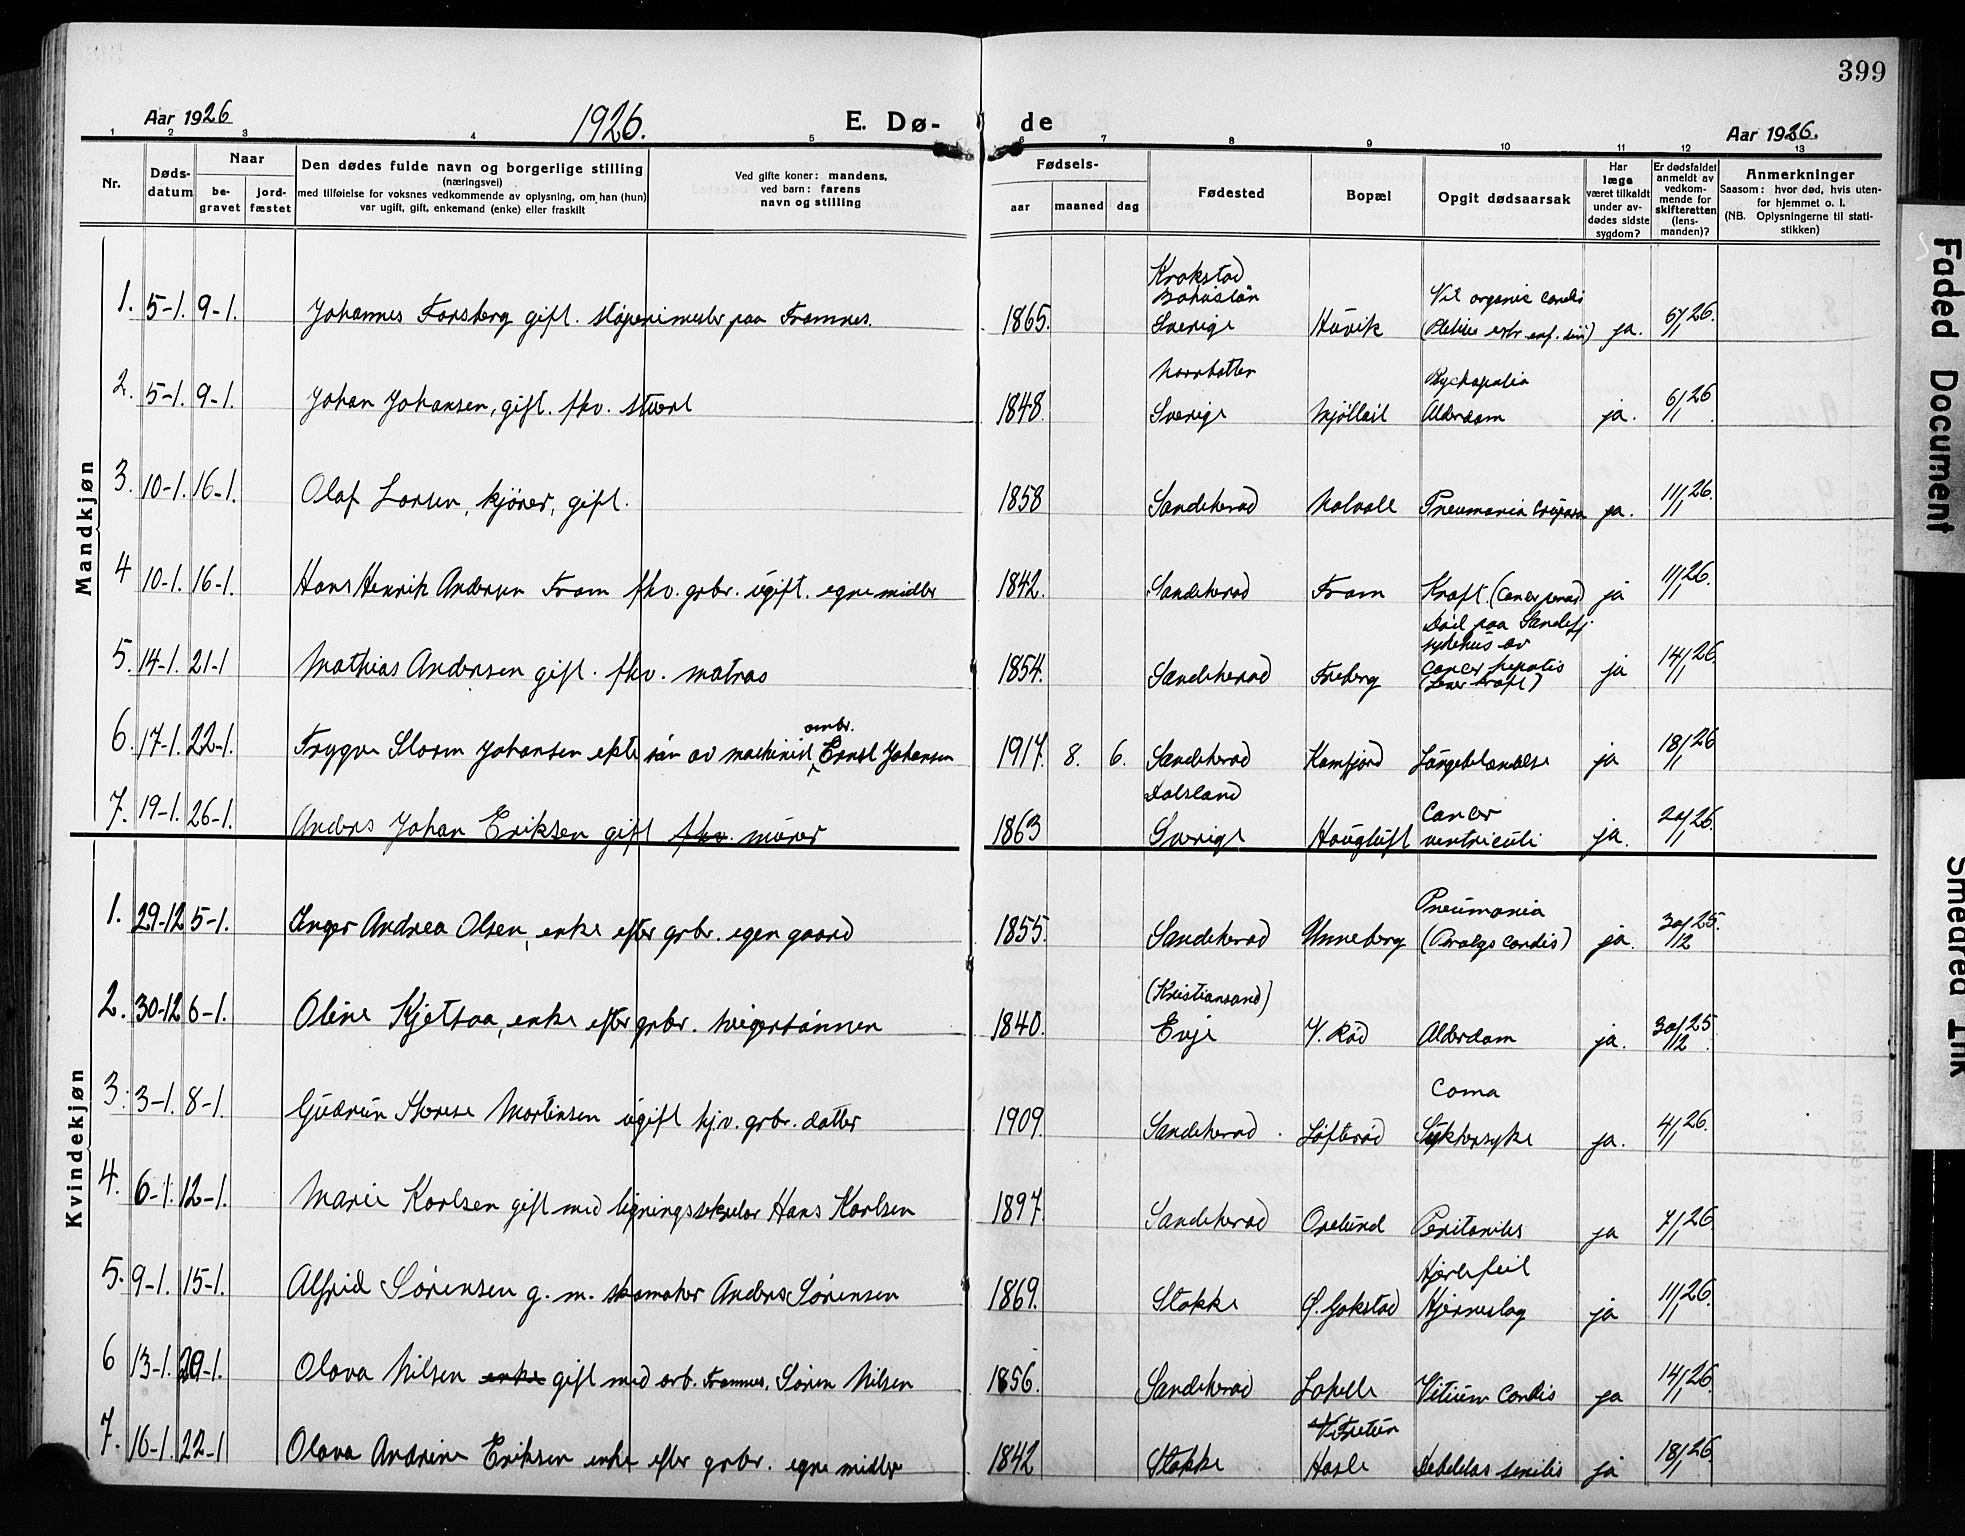 399
Aar 1926
1926.
E. Dø- de
Aar 1926.
1 2 3 4 5 6 7 8 9 10 11 12 13
Nr.
Døds-datum
Naar
be-gravet
jord-fæstet
Den dødes fulde navn og borgerlige stilling
(næringsvei)
med tilføielse for voksnes vedkommende av oplysning, om han (hun)
var ugift, gift, enkemand (enke) eller fraskilt
Ved gifte koner: mandens,
ved barn: farens
navn og stilling
Fødsels-
aar maaned dag
Fødested
Bopæl
Opgit dødsaarsak
Har læge været tilkaldt under av-dødes sidste sygdom?
Er dødsfaldet anmeldt av vedkom-mende for skifteretten (lens-manden)?
Anmerkninger
Saasom: hvor død, hvis uten-for hjemmet o. l.
(NB. Oplysningerne til stati-stikken)
Mandkjøn
1. 5-1. 9-1. Johannes Forsberg gift. støperimester paa Framnes. 1865. Krokstad Bohuslän Sverige Huvik Vit organic cordis ja. 6/1 26.
2. 5-1. 9-1. Johan Johansen, gift. fhv. stuert 1848. Norrbotten Sverige Alderdom ja. 6/1 26
3. 10-1. 16-1. Olaf Larsen, kjører, gift. 1858 Sandeherad Pneumonia cruposa ja. 11/1 26.
4 10-1. 16-1. Hans Henrik Andersen Fram fhv. grbr. ugift. egne midler 1842. Sandeherad Fram Kræft. ja 11/1 26.
5. 14-1. 21-1 Mathias Andersen gift. fhv. matros 1854. Sandeherad Freberg Død paa Sandefj. sykehus av cancer hepatis (Lever kræft) ja 14/1 26.
6. 17-1. 22-1. Trygve Storm Johansen ekte søn av maskinist ombr. Ernst Johansen 1917. 8. 6. Sandeherad Kamfjord Lungebetændelse ja 18/1 26
7. 19-1. 26-1. Anders Johan Eriksen gift fhv. murer 1863 Dalsland Sverige Haugtuft Cancer ventriculi ja. 20/1 26.
Kvindekjøn
1. 29-12 5-1. Inger Andrea Olsen, enke efter grbr. egen gaard 1855. Sandeherad Unneberg Pneumonia (Paralys cordis) ja. 30/12 25.
2. 30-12 6-1. Oline Kjetsaa, enke efter grbr. svigersønnen 1840. (Kristiansand) Evje V. Rød Alderdom ja. 30/12 25
3. 3-1. 8-1. Gudrun Therese Martinsen ugift hjv. grbr. datter 1909. Sandeherad Løfterød Coma Sukkersyke ja. 4/1 26.
4. 6-1. 12-1. Marie Karlsen gift med ligningssekretær Hans Karlsen 1897. Sandeherad Orelund Peritonitis ja 7/1 26.
5. 9-1. 15-1. Alfrid Sørensen g. m. skomaker Anders Sørensen 1869. Stokke Ø. Gokstad Hjertefeil Hjerneslag ja 11/1 26.
6 13-1. 20-1. Olava Nilsen enke gift med arb. Framnes. Søren Nilsen 1856. Sandeherad Lahelle Vitium cordis ja 14/1 26.
7. 16-1. 22-1 Olava Andrine Eriksen enke efter grbr. egne midler 1842 Stokke Hasle Debilitas senilis ja 18/1 26.
Faded Document
Smeared Ink